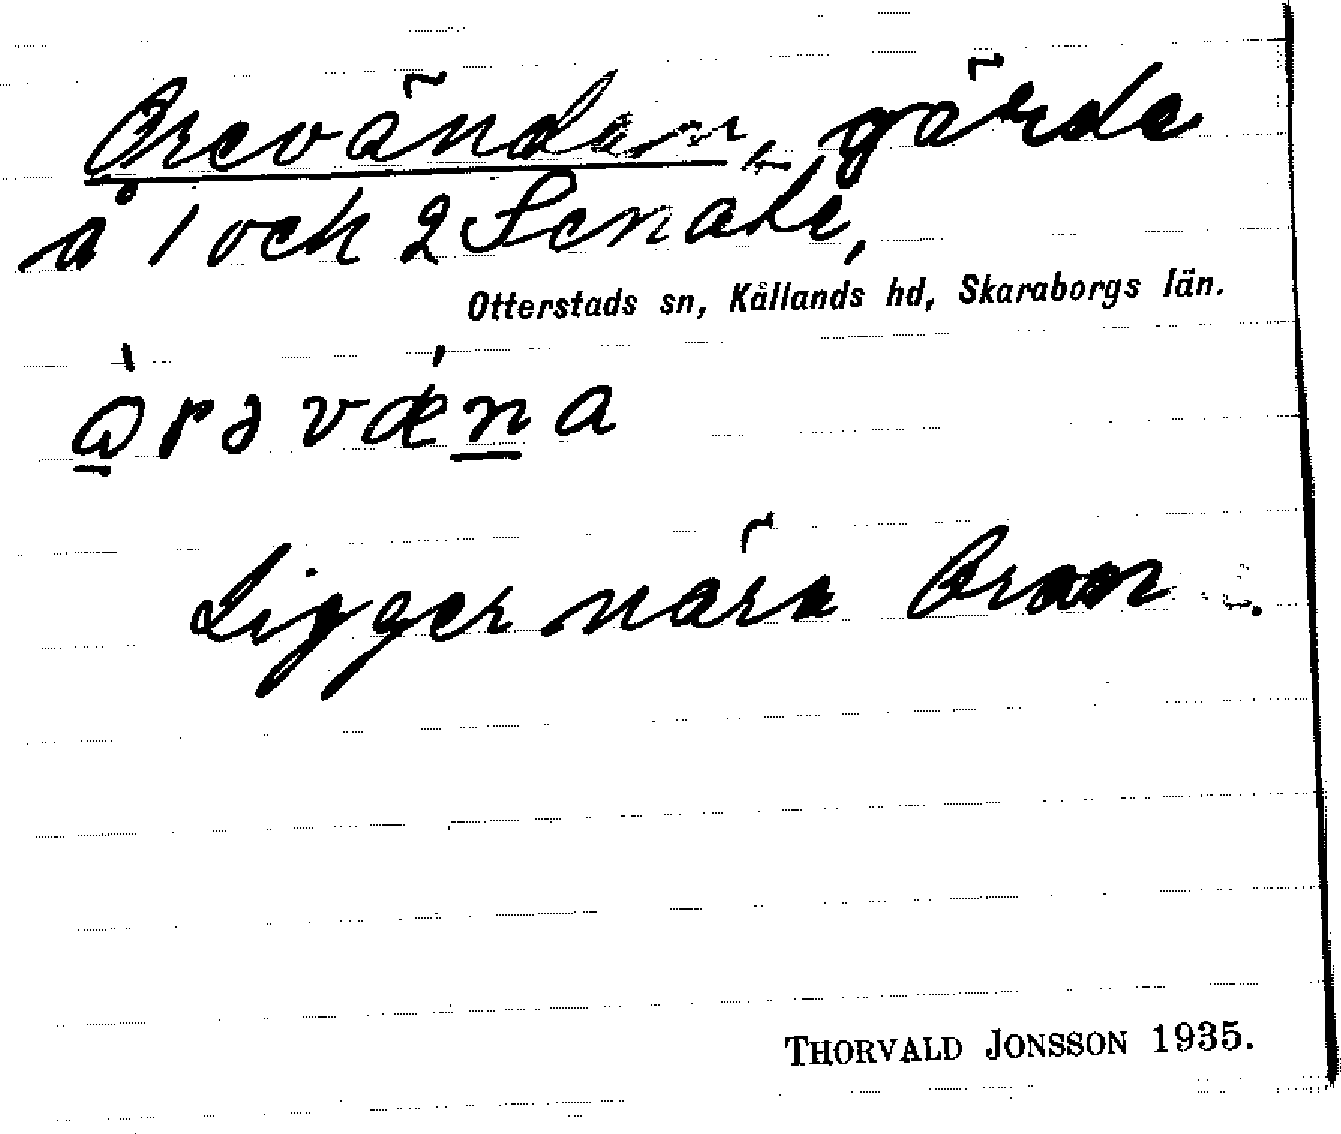 Orevändan, gärde
å 1 och 2 Senäte,
Otterstads sn, Kållands hd, Skaraborgs län.
Ligger nära Oran
THORVALD JONSSON 1935.